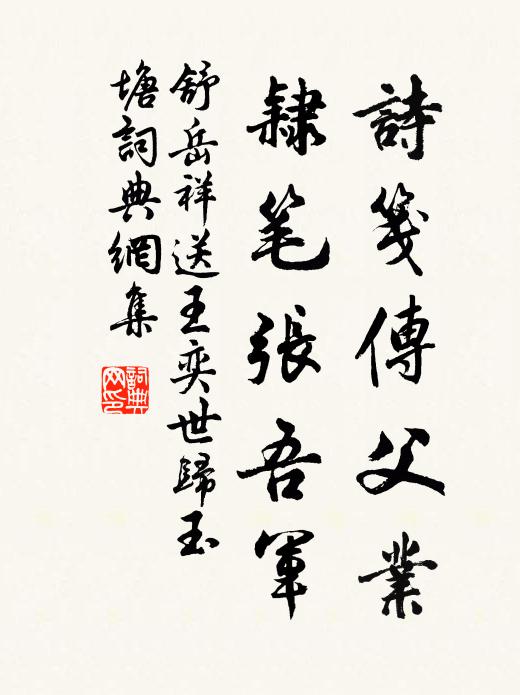 詩箋傳父業
隷笔張吾軍
舒岳祥送王奕世歸玉
塘詞典網集
詞典网印